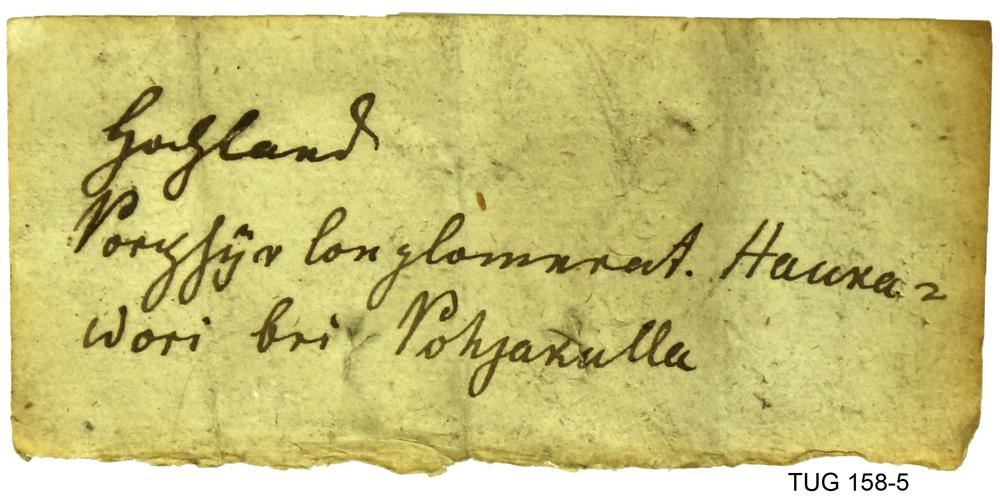 Hochland
Porphÿr conglomerat. Haura=
wori bei Pohjakulla
TUG 158-5